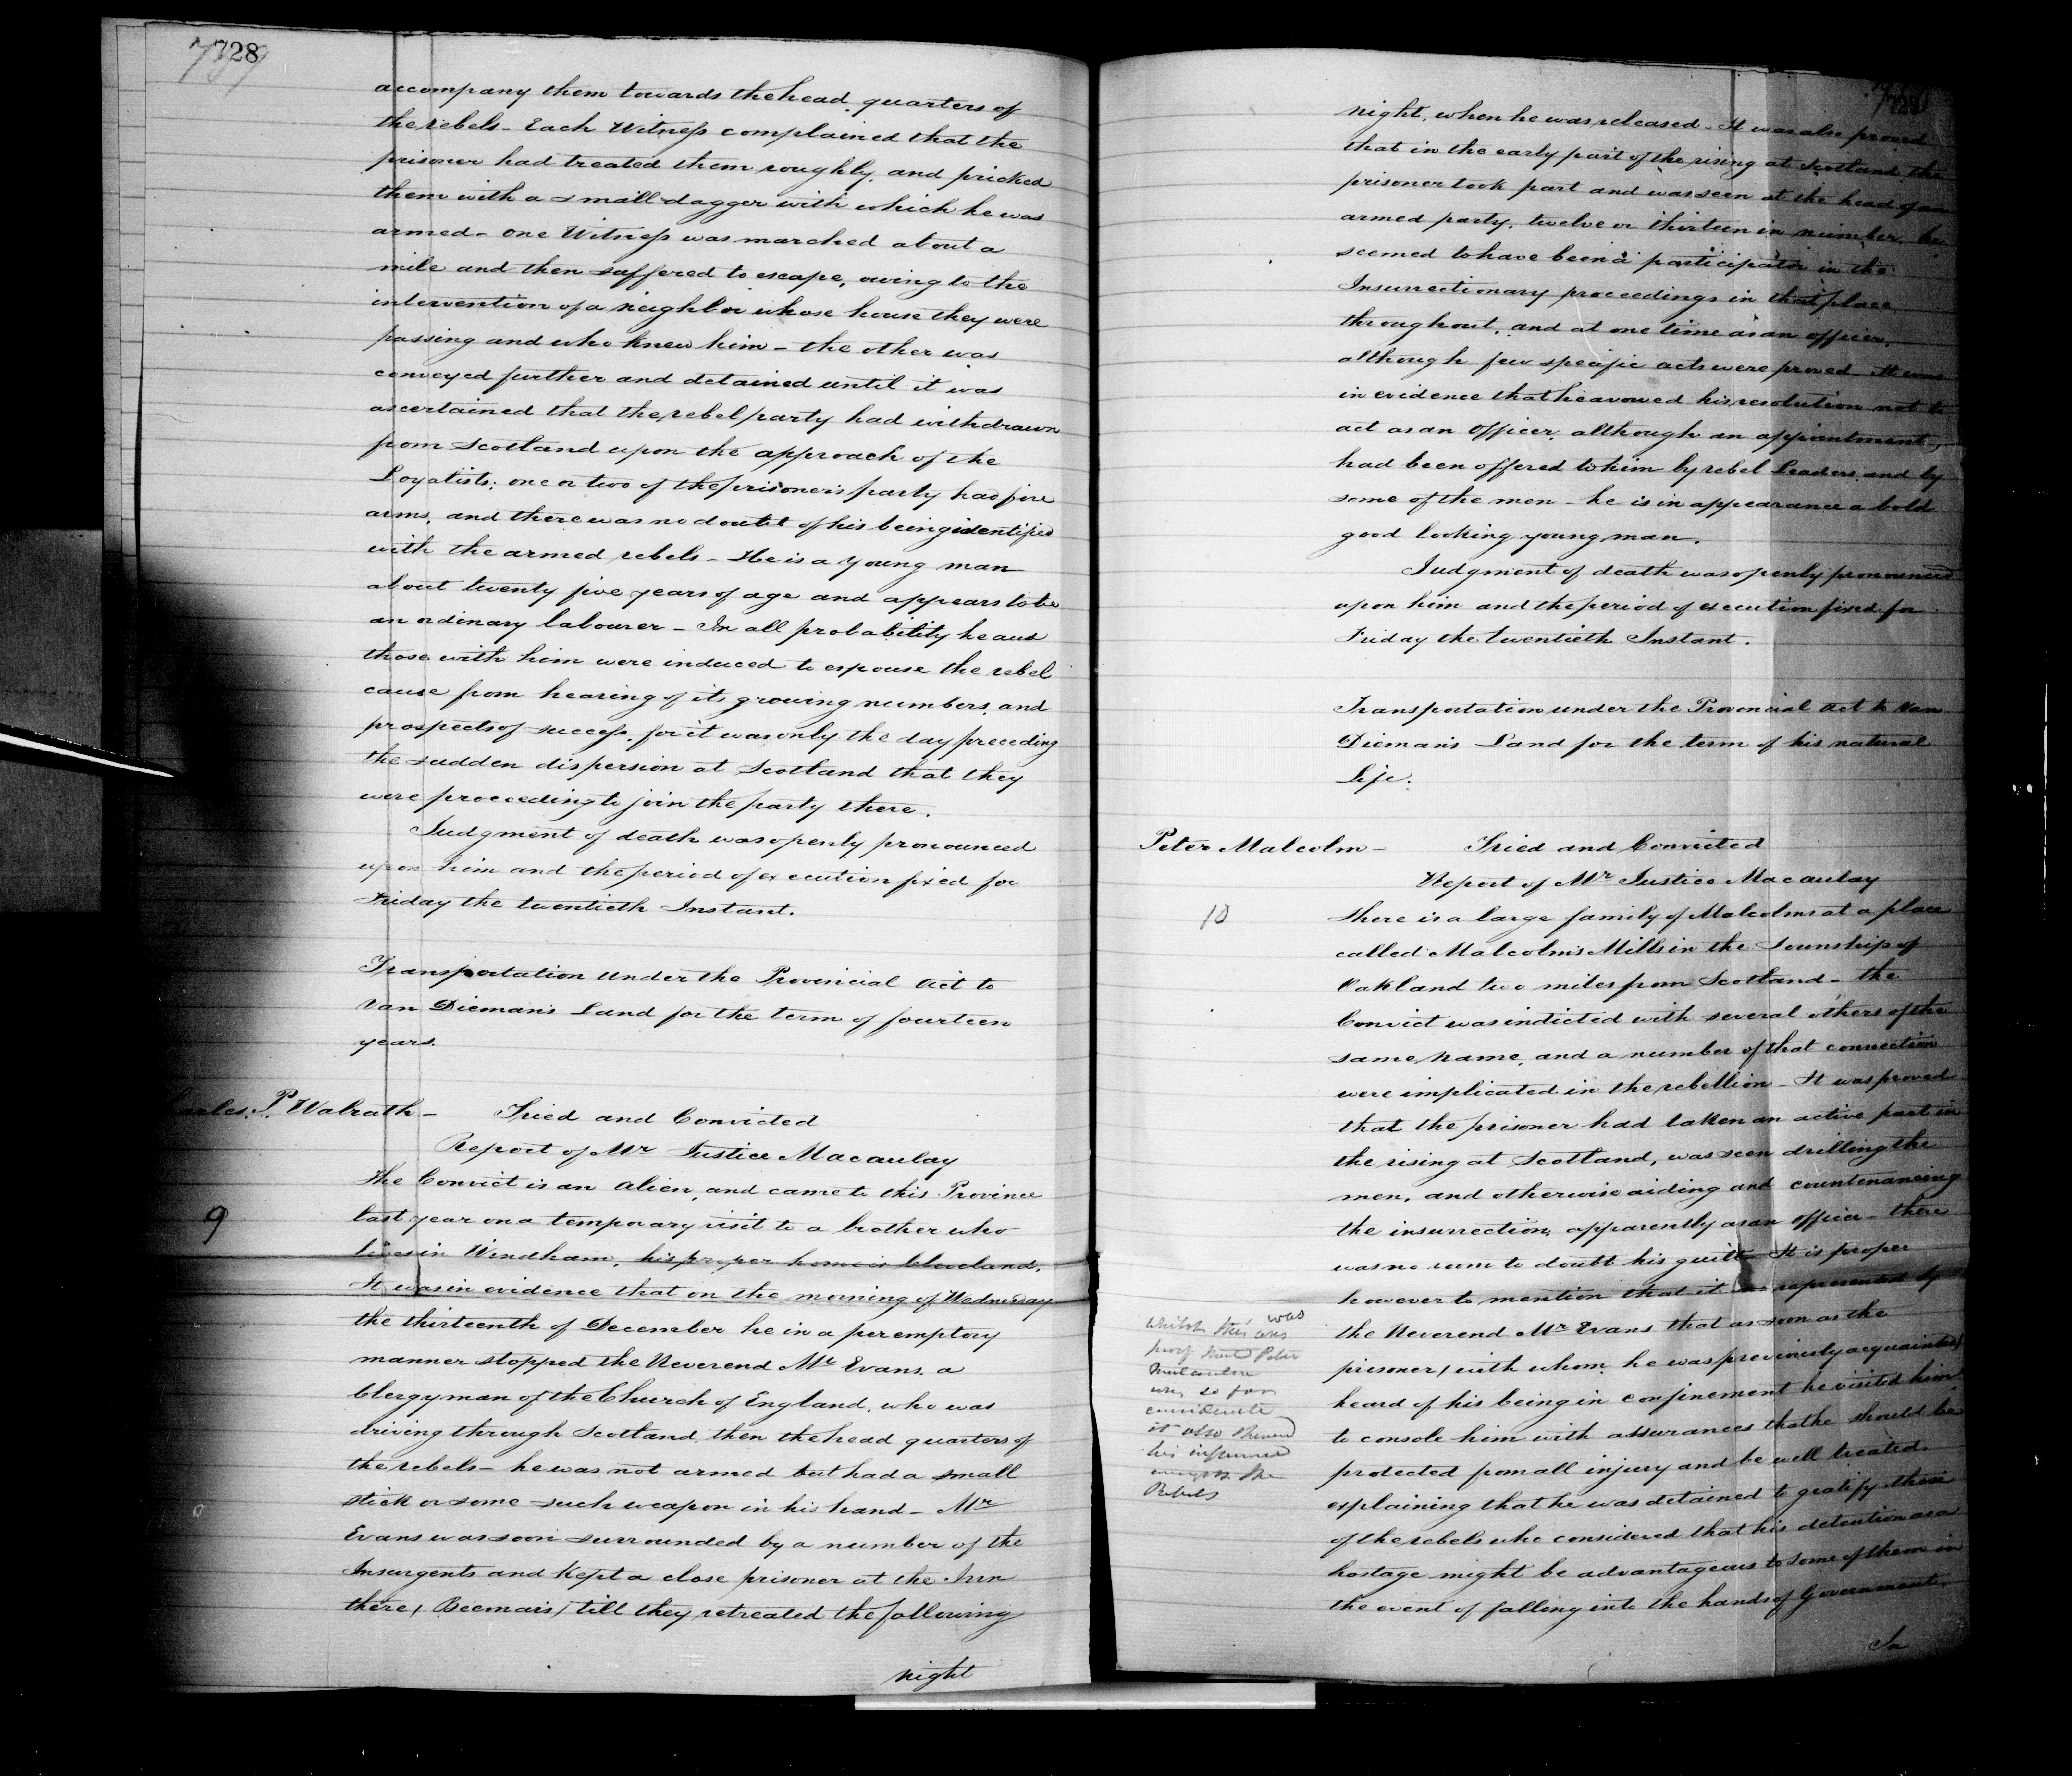 728
accompany them towards the head quarters of
the rebels - Each Witness complained that the
prisoner had treated them roughly, and pricked
them with a small dagger with which he was
armed - One Witness was marched about a
mile and then suffered to escape, owing to the
intervention of a neighbor whose house they were
passing and who knew him - the other was
conveyed further and detained until it was
ascertained that the rebel party had withdrawn
from Scotland upon the approach of the
Loyalists; one or two of the prisoner's party had fire
arms, and there was no doubt of his being identified
with the armed rebels - He is a young man
about twenty five years of age and appears to be
an ordinary labourer - In all probability he and
those with him were induced to espouse the rebel
cause from hearing of its growing numbers, and
prospects of success, for it was only the day preceding
the sudden dispersion at Scotland that they
were proceeding to join the party there.
Judgment of death was openly pronounced
upon him and the period of execution fixed for
Friday the twentieth Instant.
Transportation under the Provincial Act to
Van Dieman's Land for the term of fourteen
years.
arles. P. Walrath - Tried and Convicted
Report of Mr Justice Macaulay
9
The Convict is an Alien, and came to this Province
last year on a temporary visit to a brother who
lives in Windham, his proper home is Cleveland.
It was in evidence that on the morning of Wednesday
the thirteenth of December he in a peremptory
manner stopped the Reverend Mr Evans, a
Clergyman of the Church of England, who was
driving through Scotland, then the head quarters of
the rebels - he was not armed but had a small
stick or some such weapon in his hand - Mr
Evans was soon surrounded by a number of the
Insurgents and kept a close prisoner at the Inn
there, ( Beemais ) till they retreated the following
night
729
night, when he was released - It was also proved
that in the early part of the rising at Scotland the
prisoner took part and was seen at the head of an
armed party, twelve or thirteen in number, he
seemed to have been a participator in the
Insurrectionary proceedings in that place
throughout, and at one time as an officer,
although few specific acts were proved It was
in evidence that he avowed his resolution not to
act as an Officer, although an appointment,
had been offered to him by rebel Leaders, and by
some of the men - he is in appearance a bold
good looking young man.
Judgment of death was openly pronounced
upon him and the period of execution fixed for
Friday the twentieth Instant.
Transportation under the Provincial Act to Van
Dieman's Land for the term of his natural
Life.
Peter Malcolm - Tried and Convicted
Report of Mr Justice Macaulay
10
There is a large family of Malcolms at a place
called Malcolm's Mills in the Township of
Oakland two miles from Scotland - the
Convict was indicted with several others of the
same name, and a number of that connection
were implicated in the rebellion - It was proved
that the prisoner had taken an active part in
the rising at Scotland, was seen drilling the
men, and otherwise aiding and countenancing
the insurrection, apparently as an Officer - there
was no room to doubt his guilt It is proper
however to mention that it was represented by
the Reverend Mr Evans that as soon as the
prisoner, ( with whom he was previously acquainted )
heard of his being in confinement he visited him
to console him with assurances that he should be
protected from all injury and be well treated.
explaining that he was detained to gratify those
of the rebels who considered that his detention as a
hostage might be advantageous to some of them in
the event of falling into the hands of Government.
In
whilst this was
was so far
considerate
it also shewed
his influence
Rebels